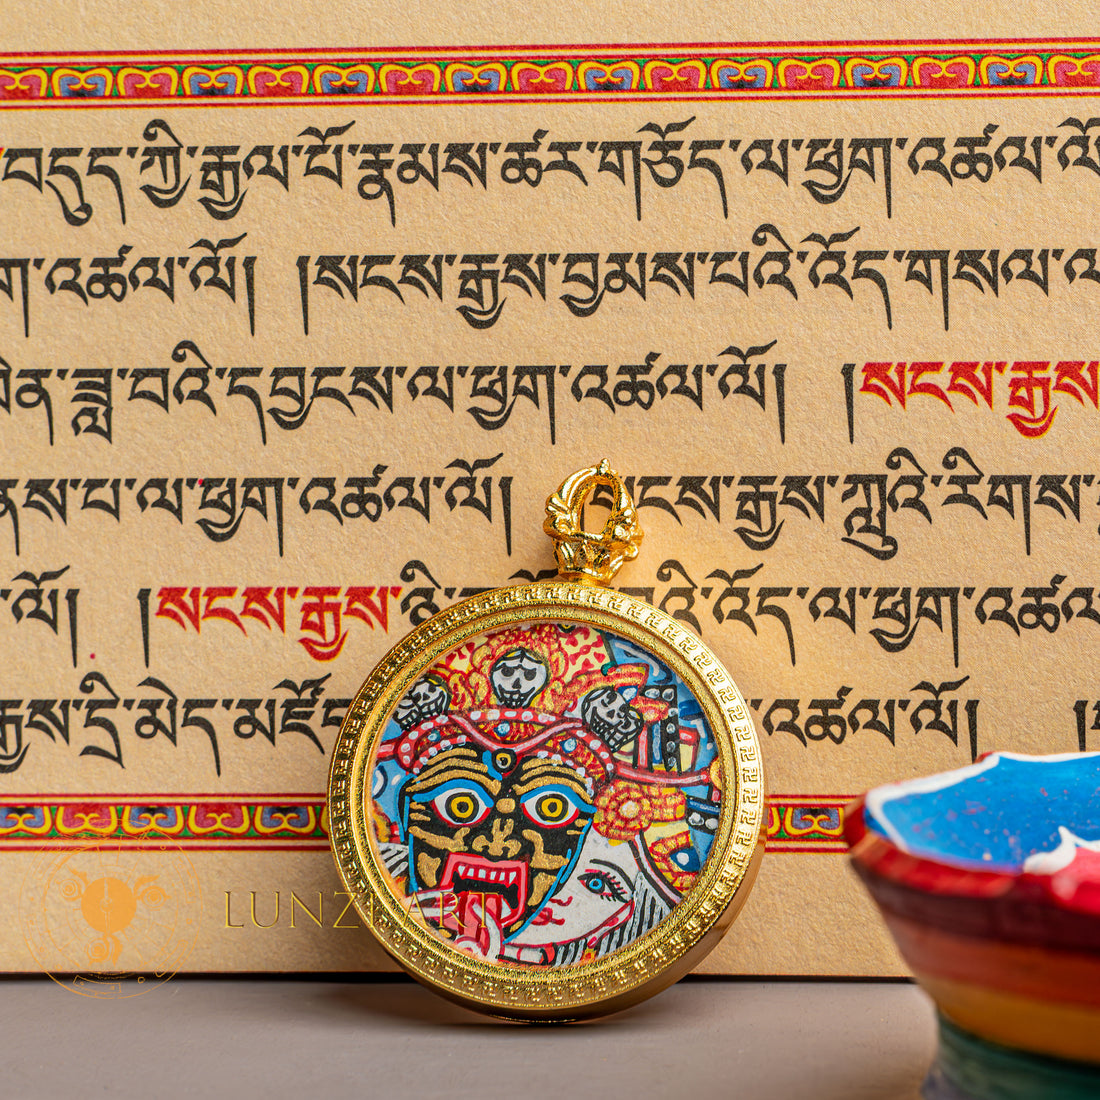 བདུད་ཀྱི་རྒྱལ་པོ་རྣམས་ཚར་གཅོད་ལ་ཕྱག་འཚལ་ལོ
འཚལ་ལོ། །སངས་རྒྱས་བྱམས་པའི་འོད་གསལ་ལ
ཟླ་བའི་དབྱངས་ལ་ཕྱག་འཚལ་ལོ། །སངས་རྒྱས
པ་ལ་ཕྱག་འཚལ་ལོ། སངས་རྒྱས་ཀླུའི་རིགས
ལོ། །སངས་རྒྱས་ འོད་ལ་ཕྱག་འཚལ
དྲི་མེད་མཛོ འཚལ་ལོ། །
LUNZIART